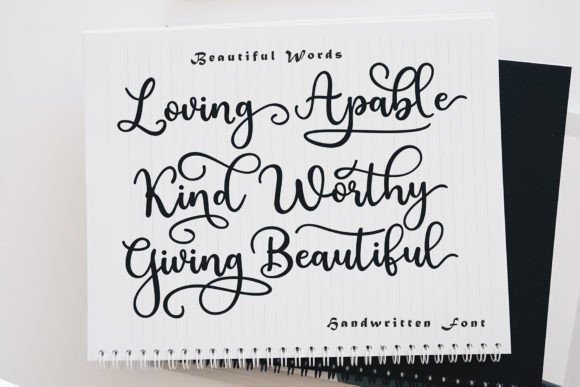 Beautiful Words
Loving Apable
Kind Worthy
Giving Beautiful
Handwritten Font